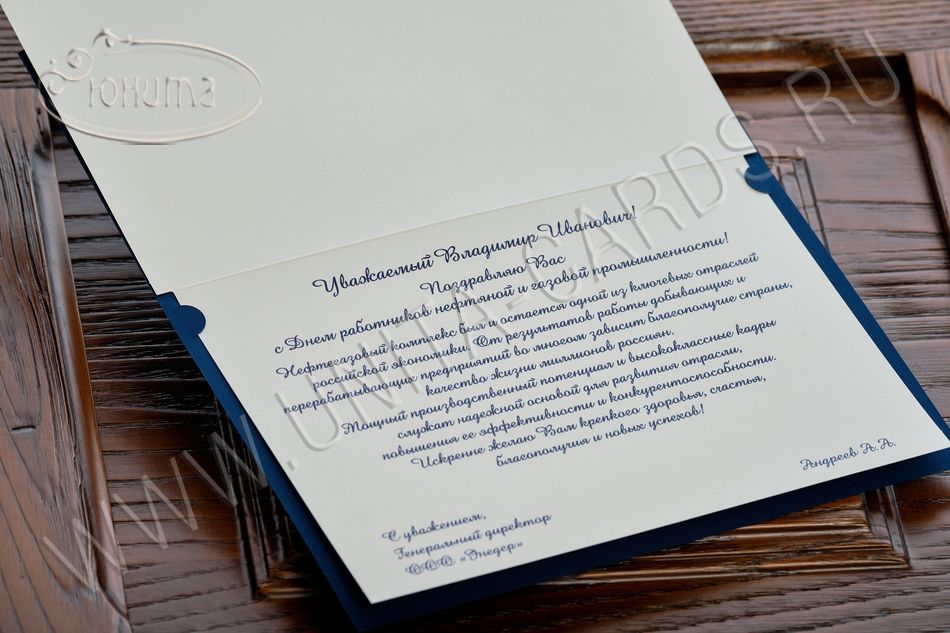 Юнита
WWW.UNITA-CARDS.RU
Уважаемый Владимир Иванович!
Поздравляю Вас
с Днем работников нефтяной и газовой промышленности!
Нефтегазовый комплекс был и остается одной из ключевых отраслей
российской экономики. От результатов работы добывающих и
перерабатывающих предприятий во многом зависит благополучие страны,
качество жизни миллионов россиян.
Мощный производственный потенциал и высококлассные кадры
служат надежной основой для развития отрасли,
повышения ее эффективности и конкурентоспособности.
Искренне желаю Вам крепкого здоровья, счастья,
благополучия и новых успехов!
С уважением,
Генеральный директор
ООО «Энедер»
Андреев А.А.